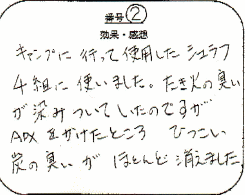 番号②
効果・感想
キャンプに行って使用したシュラフ
4組に使いました。たき火の臭い
が染みついていたのですが
APXをかけたところ ひつこい
炭の臭いが ほとんど消えました